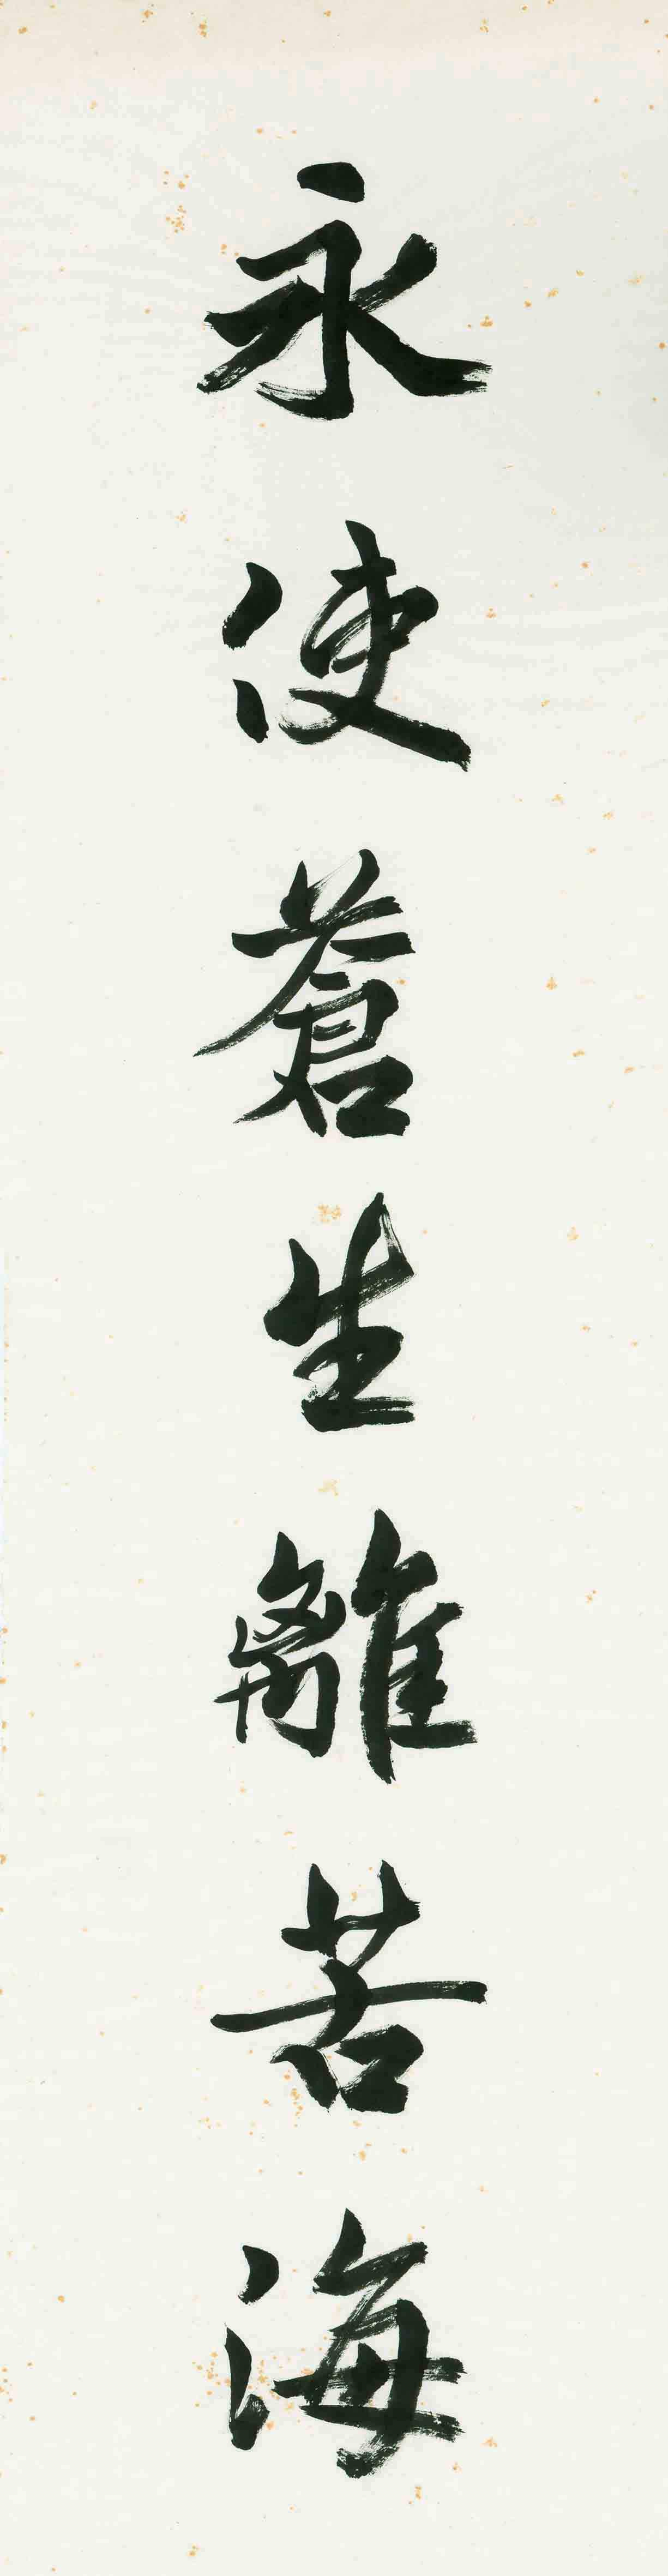 永使蒼生離苦海